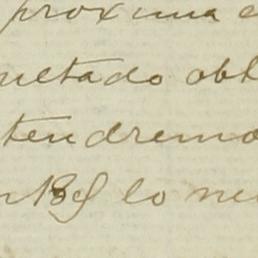 proxima e
ultado obt
tendremo
lo ne